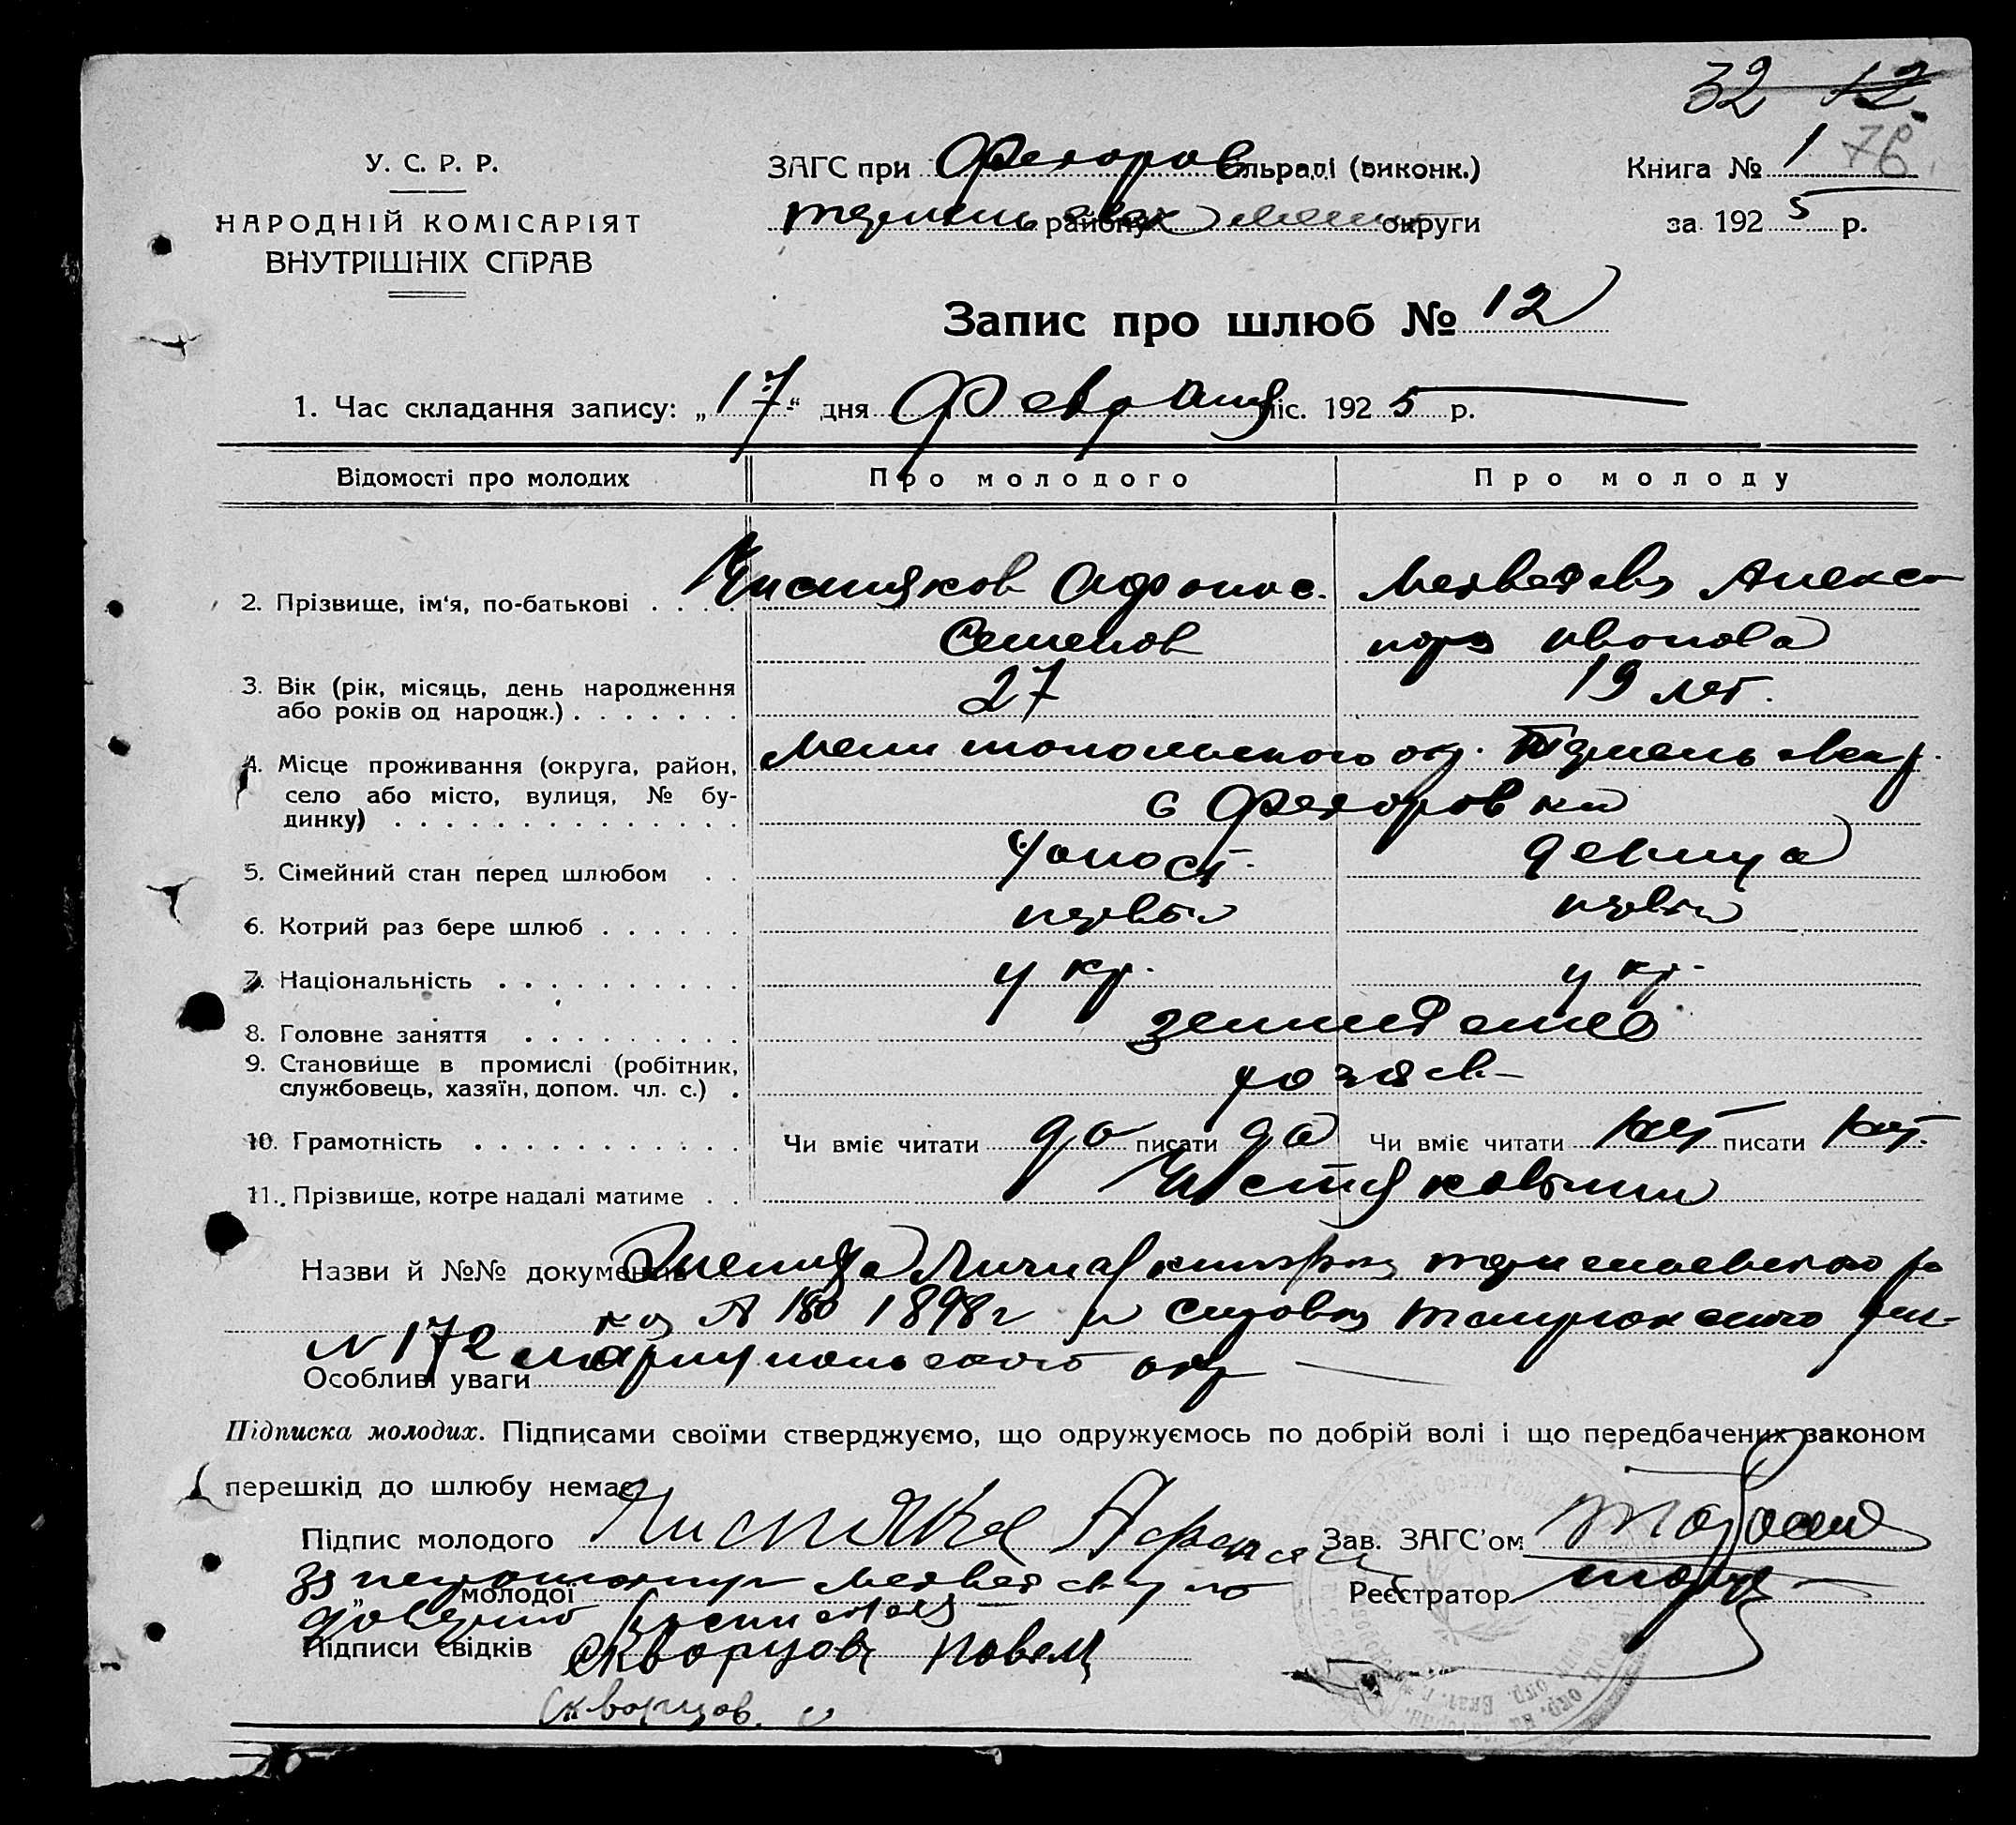 32 12
У. С. Р. Р.
НАРОДНІЙ КОМІСАРІЯТ
ВНУТРІШНІХ СПРАВ
ЗАГС при Федоров сільраді (виконк.)
району Мелит округи
Книга № 1 76
за 1925 р.
Запис про шлюб № 12
1. Час складання запису: „17“ дня Февраля міс. 1925 р.
Відомості про молодих Про молодого Про молоду
2. Прізвище, ім'я, по-батькові . . . . Чистяков Афонас. Медведева Алекса
Семенов ндра Иванова
3. Вік (рік, місяць, день народження
або років од народж.) . . . . . . . 27 19 лет.
4. Місце проживання (округа, район, Мелитопольского окр.
село або місто, вулиця, № бу-
динку) . . . . . . . . . . . . . . с Федоровки
5. Сімейний стан перед шлюбом . . холост. девица
6. Котрий раз бере шлюб . . . . . . первы первы
7. Національність . . . . . . . . . . укр. укр.
8. Головне заняття . . . . . . . . земледелие
9. Становище в промислі (робітник,
службовець, хазяїн, допом. чл. с.) . хозяев
10. Грамотність . . . . . . . . . . . Чи вміє читати да писати да Чи вміє читати нет писати нет.
11. Прізвище, котре надалі матиме . . Чистяковыми
Назви й №№ документів
1898 г и
N 172 Мариупольского окр
Особливі уваги
Підписка молодих. Підписами своїми стверджуємо, що одружуємось по добрій волі і що передбачених законом
перешкід до шлюбу немає.
Підпис молодого Чистяков Афанасий
Зав. ЗАГС'ом
За неграмотную Медведеву по
„ молодої
Реєстратор
доверию
Підписи свідків Скворцов Павел
Скворцов.